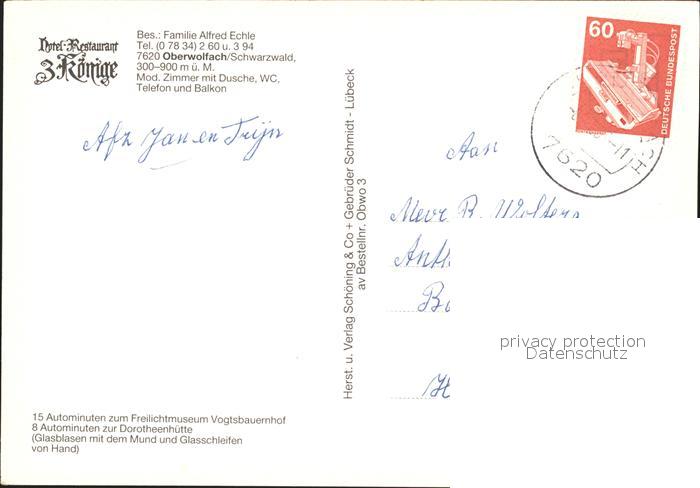 Hotel-Restaurant
3 Könige
Bes.: Familie Alfred Echle
Tel. (0 78 34) 2 60 u. 3 94
7620 Oberwolfach/Schwarzwald,
300–900 m ü. M.
Mod. Zimmer mit Dusche, WC,
Telefon und Balkon
Afz Jan en Trijn
15 Autominuten zum Freilichtmuseum Vogtsbauernhof
8 Autominuten zur Dorotheenhütte
(Glasblasen mit dem Mund und Glasschleifen
von Hand)
Herst. u. Verlag Schöning & Co + Gebrüder Schmidt - Lübeck
av Bestellnr. Obwo 3
60
DEUTSCHE BUNDESPOST
7620
Aan
Mevr R. Wolters
privacy protection
Datenschutz